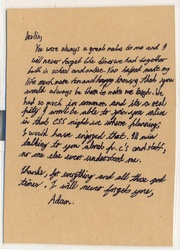 You were always a great mate to me and I
will never forget the diversive had together
both in school and online. You helped make my
life much more fun and happy knowing that you
would always be there to make me laugh. We
had so much in common and it's a real
pity I won't be able to join you online
in that CSS night we where planning,
I would have enjoyed that. I'll miss
talking to you about pc's and stuff,
no one else ever understood me.
thanks, for everything and all those good
times. I will never forget you,
Adam.